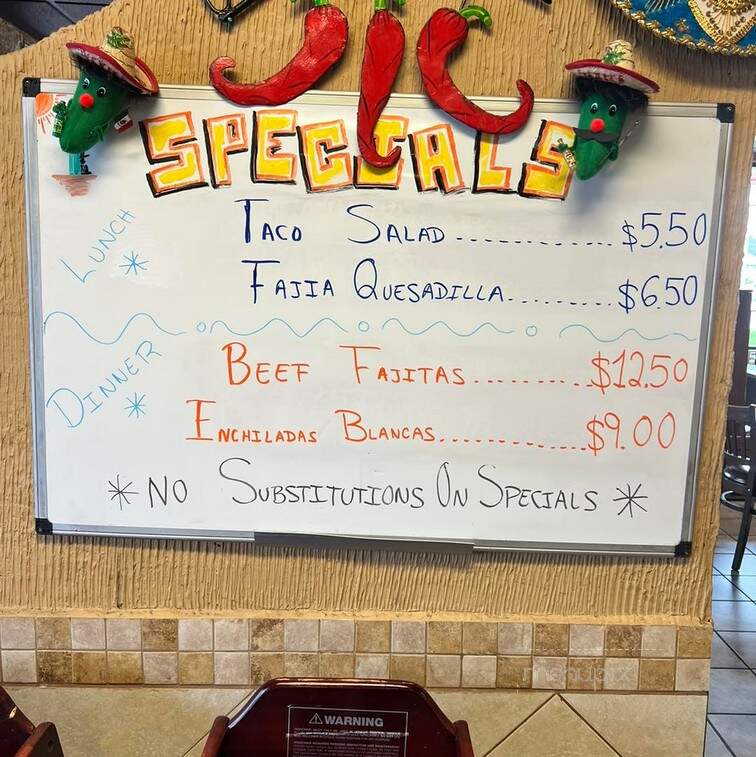 SPECIALS
LUNCH *
TACO SALAD ............... $5.50
FAJIA QUESADILLA......... $6.50
DINNER *
BEEF FAJITAS.......... $12.50
ENCHILADAS BLANCAS............. $9.00
* NO SUBSTITUTIONS ON SPECIALS *
WARNING